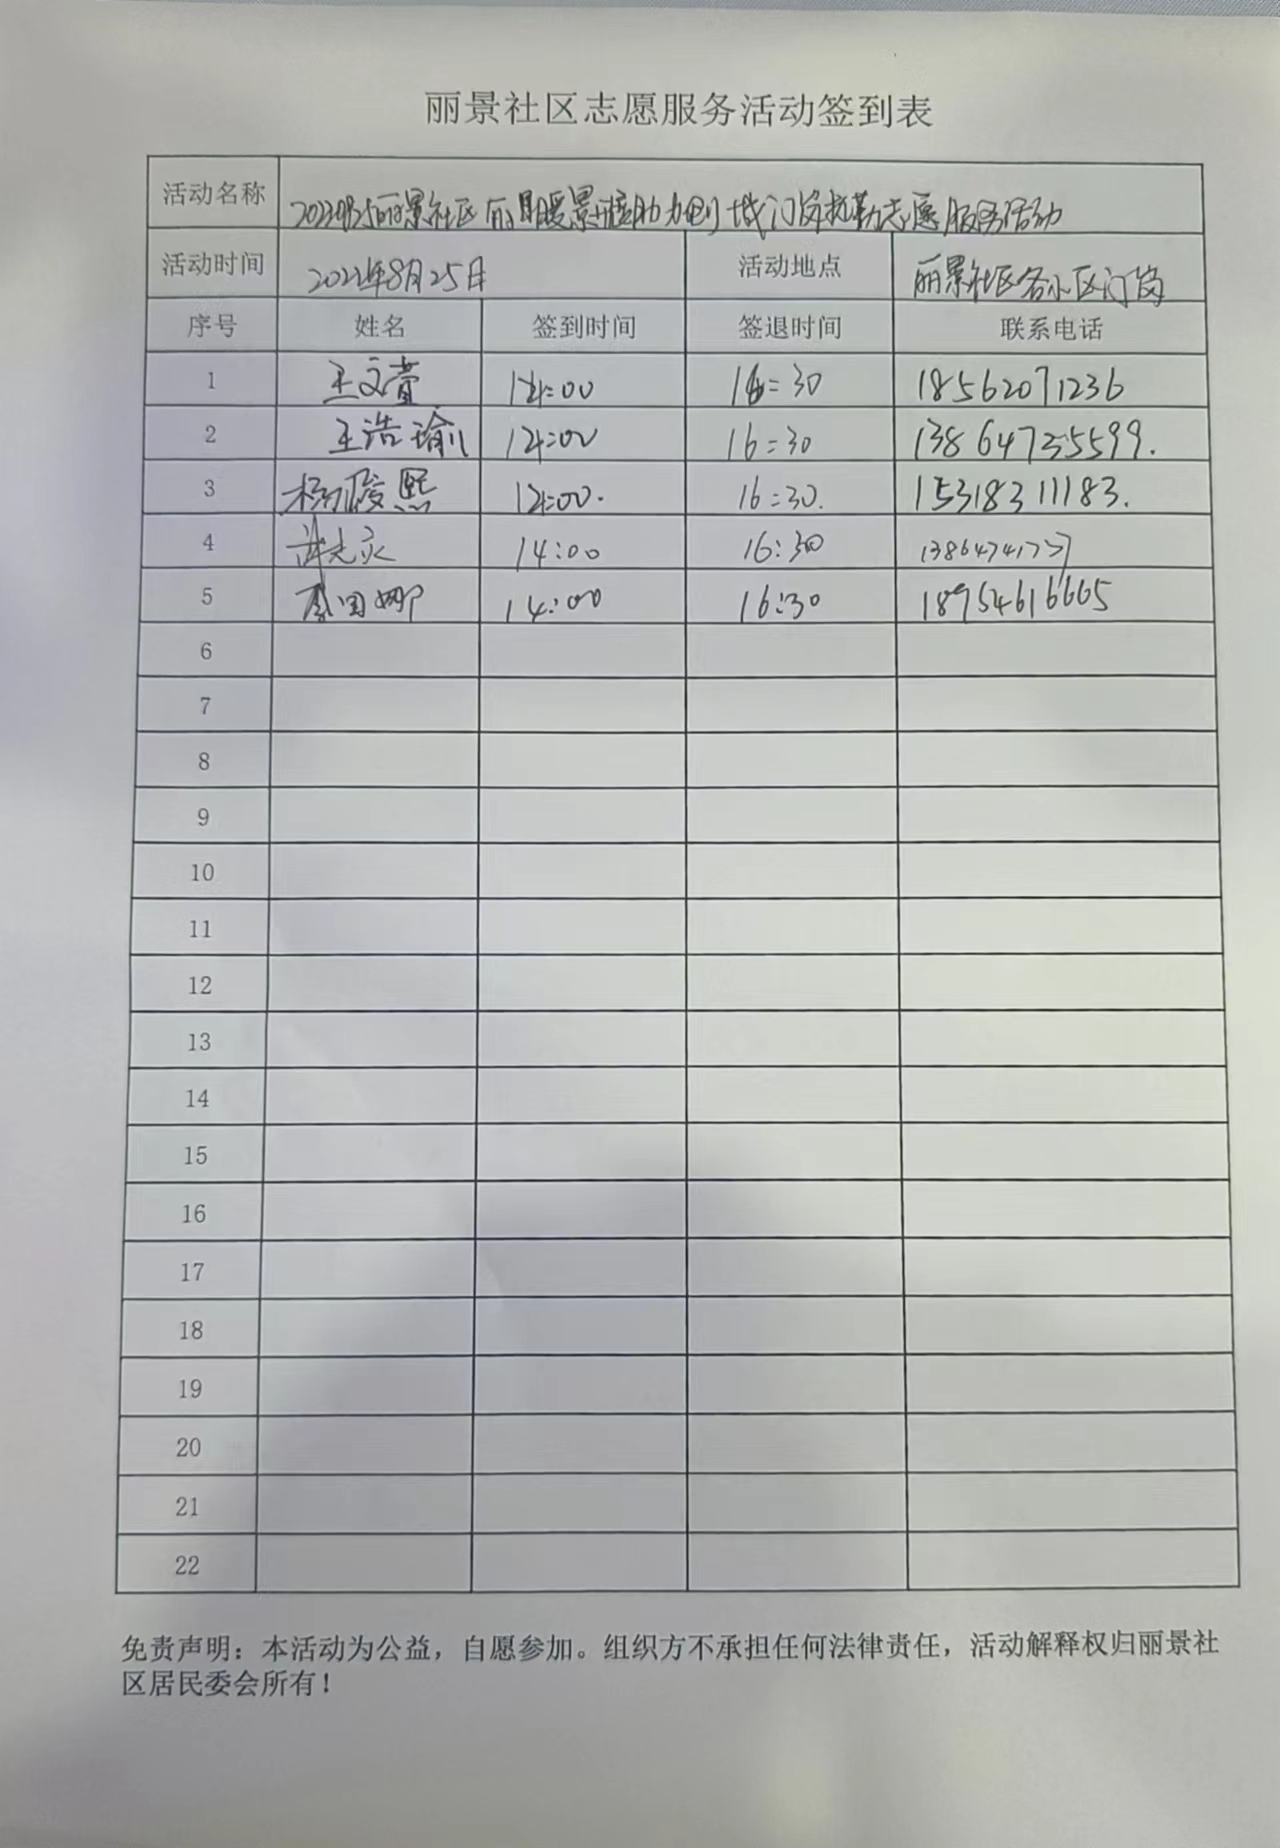 丽景社区志愿服务活动签到表
活动名称 20220825丽景社区 暖景 助力创城门岗执勤志愿服务活动
活动时间 2022年8月25日 活动地点 丽景社区各小区门岗
序号 姓名 签到时间 签退时间 联系电话
1 王文萱 14:00 16:30 18562071236
2 王浩瑜 14:00 16:30 13864735599.
3 杨俊熙 14:00. 16:30. 15318311183.
4 14:00 16:30
5 14:00 16:30 18954616665
6
7
8
9
10
11
12
13
14
15
16
17
18
19
20
21
22
免责声明：本活动为公益，自愿参加。组织方不承担任何法律责任，活动解释权归丽景社
区居民委会所有！